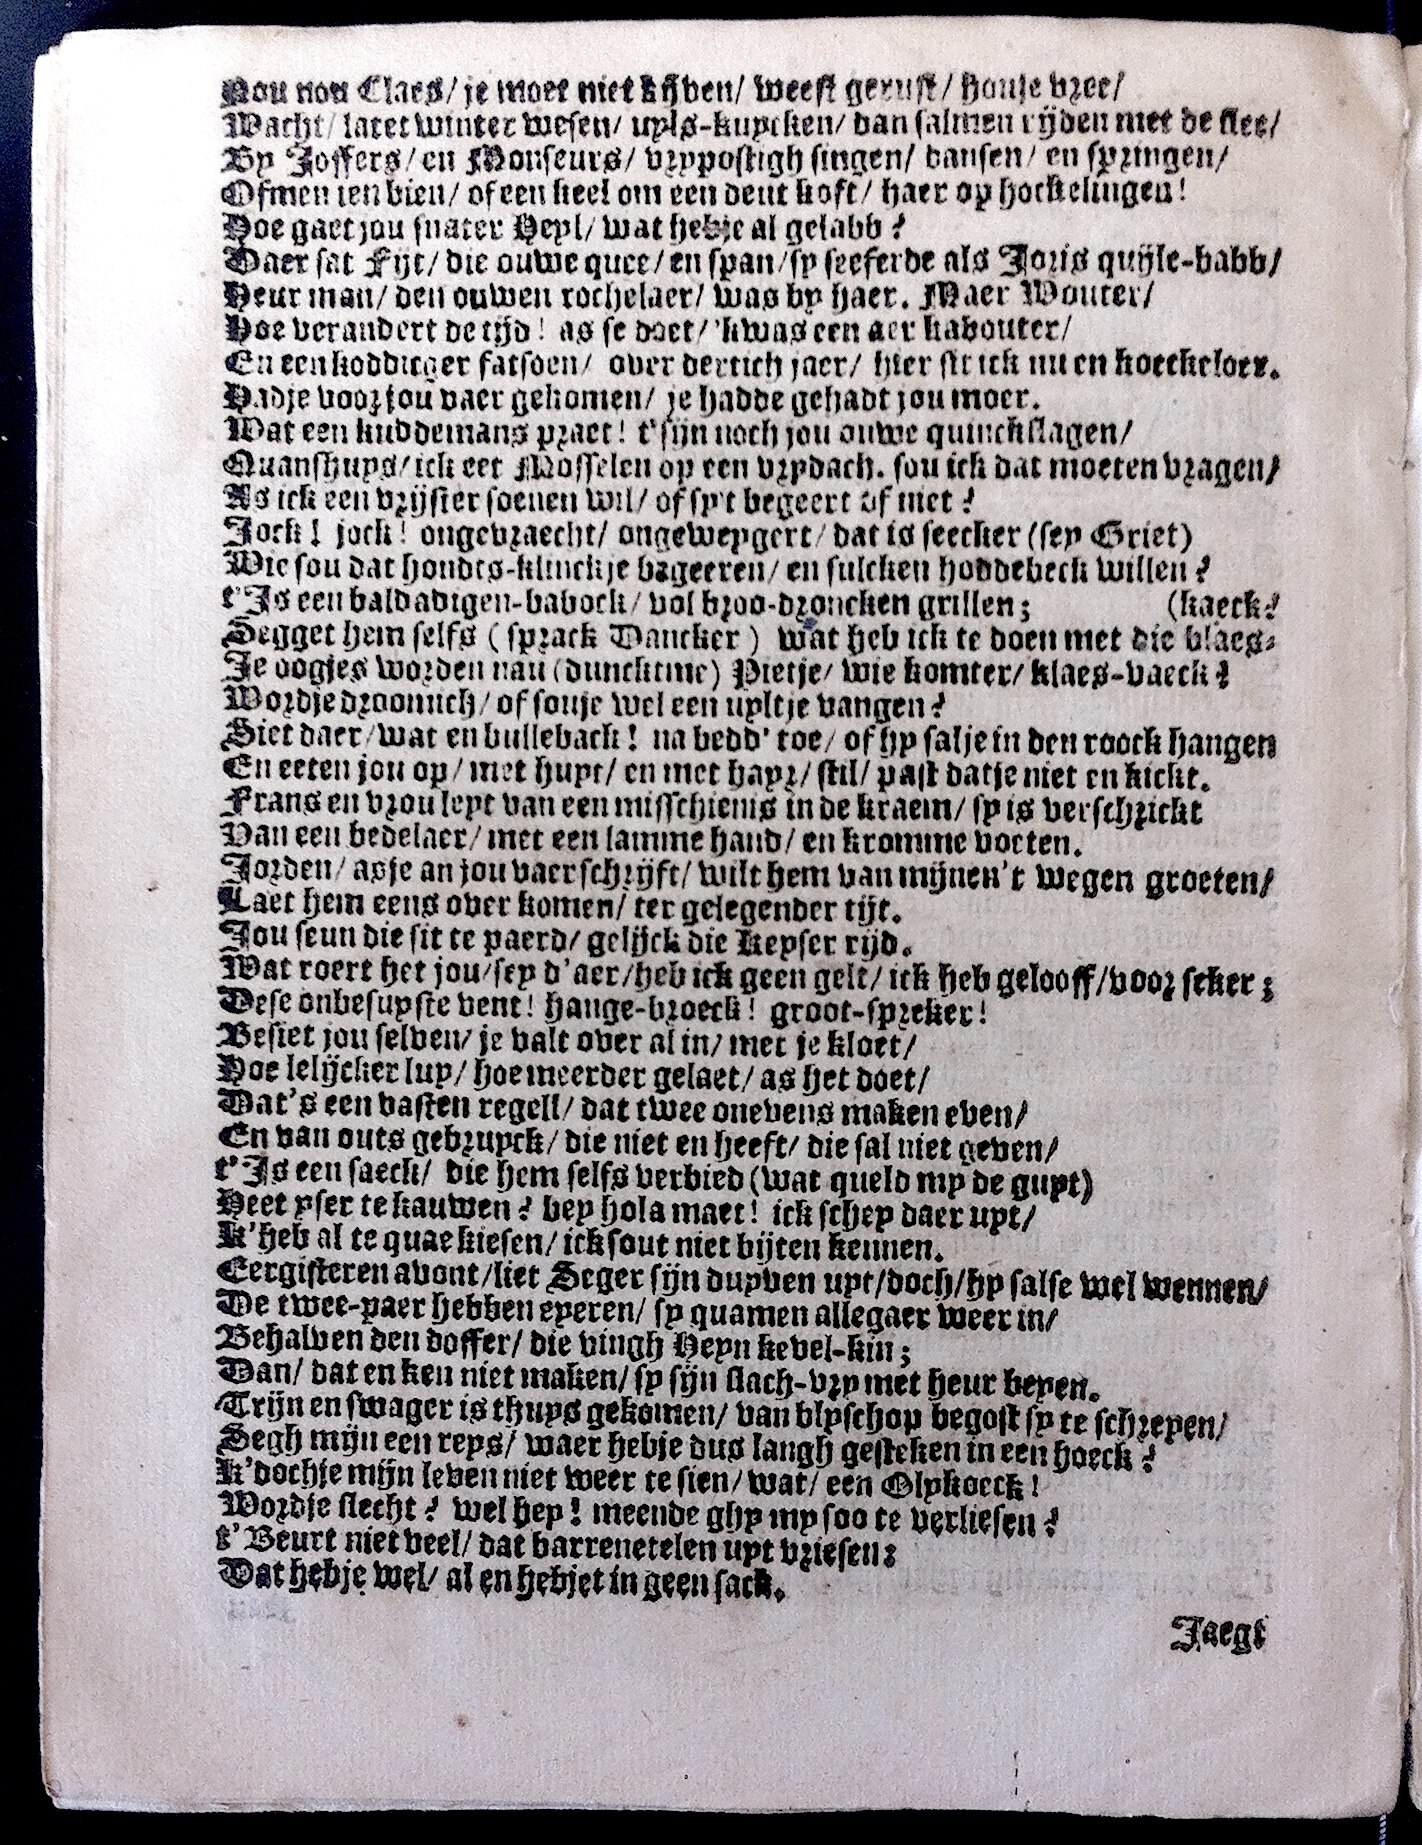 Nou nou Claes/ je moet niet kijven/ weest gerust/ houje vree/
Wacht/ latet winter wesen/ uyls-kuycken/ dan salmen rijden met de slee/
By Joffers/ en Monseurs/ vrypostigh singen/ dansen/ en springen/
Ofmen ien bien/ of een keel om een deut koft/ haer op hockelingen!
Hoe gaet jou snater Heyl/ wat hebje al gelabb?
Daer sat Fijt/ die ouwe quee/ en span/ sy seeferde als Joris quijle-babb/
Heur man/ den ouwen rochelaer/ was by haer. Maer Wouter/
Hoe verandert de tijd! as se doet/ 'kwas een aer kabouter/
En een kodditger fatsoen/ over dertich jaer/ hier sit ick nu en koeckeloer.
Hadje voor jou vaer gekomen/ je hadde gehadt jou moer.
Wat een kuddemans praet! t'sijn noch jou ouwe quinckslagen/
Quanshuys/ ick eet Mosselen op een vrydach. sou ick dat moeten vragen/
As ick een vrijster soenen wil/ of sy't begeert of niet?
Jock! jock! ongevraecht/ ongeweygert/ dat is seecker (sey Griet)
Wie sou dat hondts-klinckje begeeren/ en sulcken hoddebeck willen?
t'Is een baldadigen-babock/ vol broo-droncken grillen; (kaeck?
Segget hem selfs (sprack Dancker) wat heb ick te doen met die blaes-
Je oogjes worden nau (duncktme) Pietje/ wie komter/ klaes-vaeck?
Wordje droomich/ of souje wel een uyltje vangen?
Siet daer/ wat en bulleback! na bedd' toe/ of hy salje in den roock hangen
En eeten jou op/ met huyt/ en met hayr/ stil/ past datje niet en kickt.
Frans en vrou leyt van een misschienis in de kraem/ sy is verschrickt
Van een bedelaer/ met een lamme hand/ en kromme voeten.
Jorden/ asje an jou vaer schrijft/ wilt hem van mijnen't wegen groeten/
Laet hem eens over komen/ ter gelegender tijt.
Jou seun die sit te paerd/ gelijck die Keyser rijd.
Wat roert het jou/ sey d'aer/ heb ick geen gelt/ ick heb gelooff/ voor seker;
Dese onbesuyste vent! hange-broeck! groot-spreker!
Besiet jou selven/ je valt over al in/ met je kloet/
Hoe lelijcker luy/ hoe meerder gelaet/ as het doet/
Dat's een vasten regell/ dat twee onevens maken even/
En van outs gebruyck/ die niet en heeft/ die sal niet geven/
t'Is een saeck/ die hem selfs verbied (wat queld my de guyt)
Heet yser te kauwen? hey hola maet! ick schey daer uyt/
K'heb al te quae kiesen/ ick sout niet bijten kennen.
Eergisteren avont/ liet Seger sijn duyven uyt/ doch/ hy salse wel wennen/
De twee-paer hebben eyeren/ sy quamen allegaer weer in/
Behalven den doffer/ die vingh Heyn kevel-kin;
Dan/ dat en ken niet maken/ sy sijn slach-vry met heur beyen.
Trijn en swager is thuys gekomen/ van blyschop begost sy te schreyen/
Segh mijn een reys/ waer hebje dus langh gesteken in een hoeck?
K'dochje mijn leven niet weer te sien/ wat/ een Olykoeck!
Wordje slecht? wel hey! meende ghy my soo te verliesen?
t'Beurt niet veel/ dat barrenetelen uyt vriesen:
Dat hebje wel/ al en hebjet in geen sack.
Jaegt